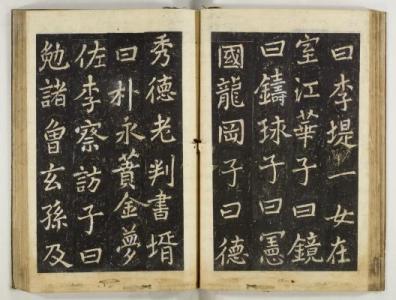 曰李堤一女在
室江華子曰鏡
曰鑄球子曰憲
國龍岡子曰德
秀德老判書壻
曰朴永蕡金夢
佐李寀訪子曰
勉諸曾玄孫及